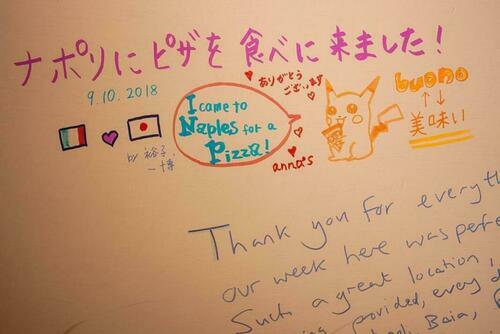 ナポリにピザを食べに来ました!
9.10.2018
I came to
Naples for a
Pizza!
ありがとう
ございます
anna's
buono
美味い
by 裕子
一博
Thank you for everyth
our week here was perfe
Such a great location,
provided, every d
Baia,